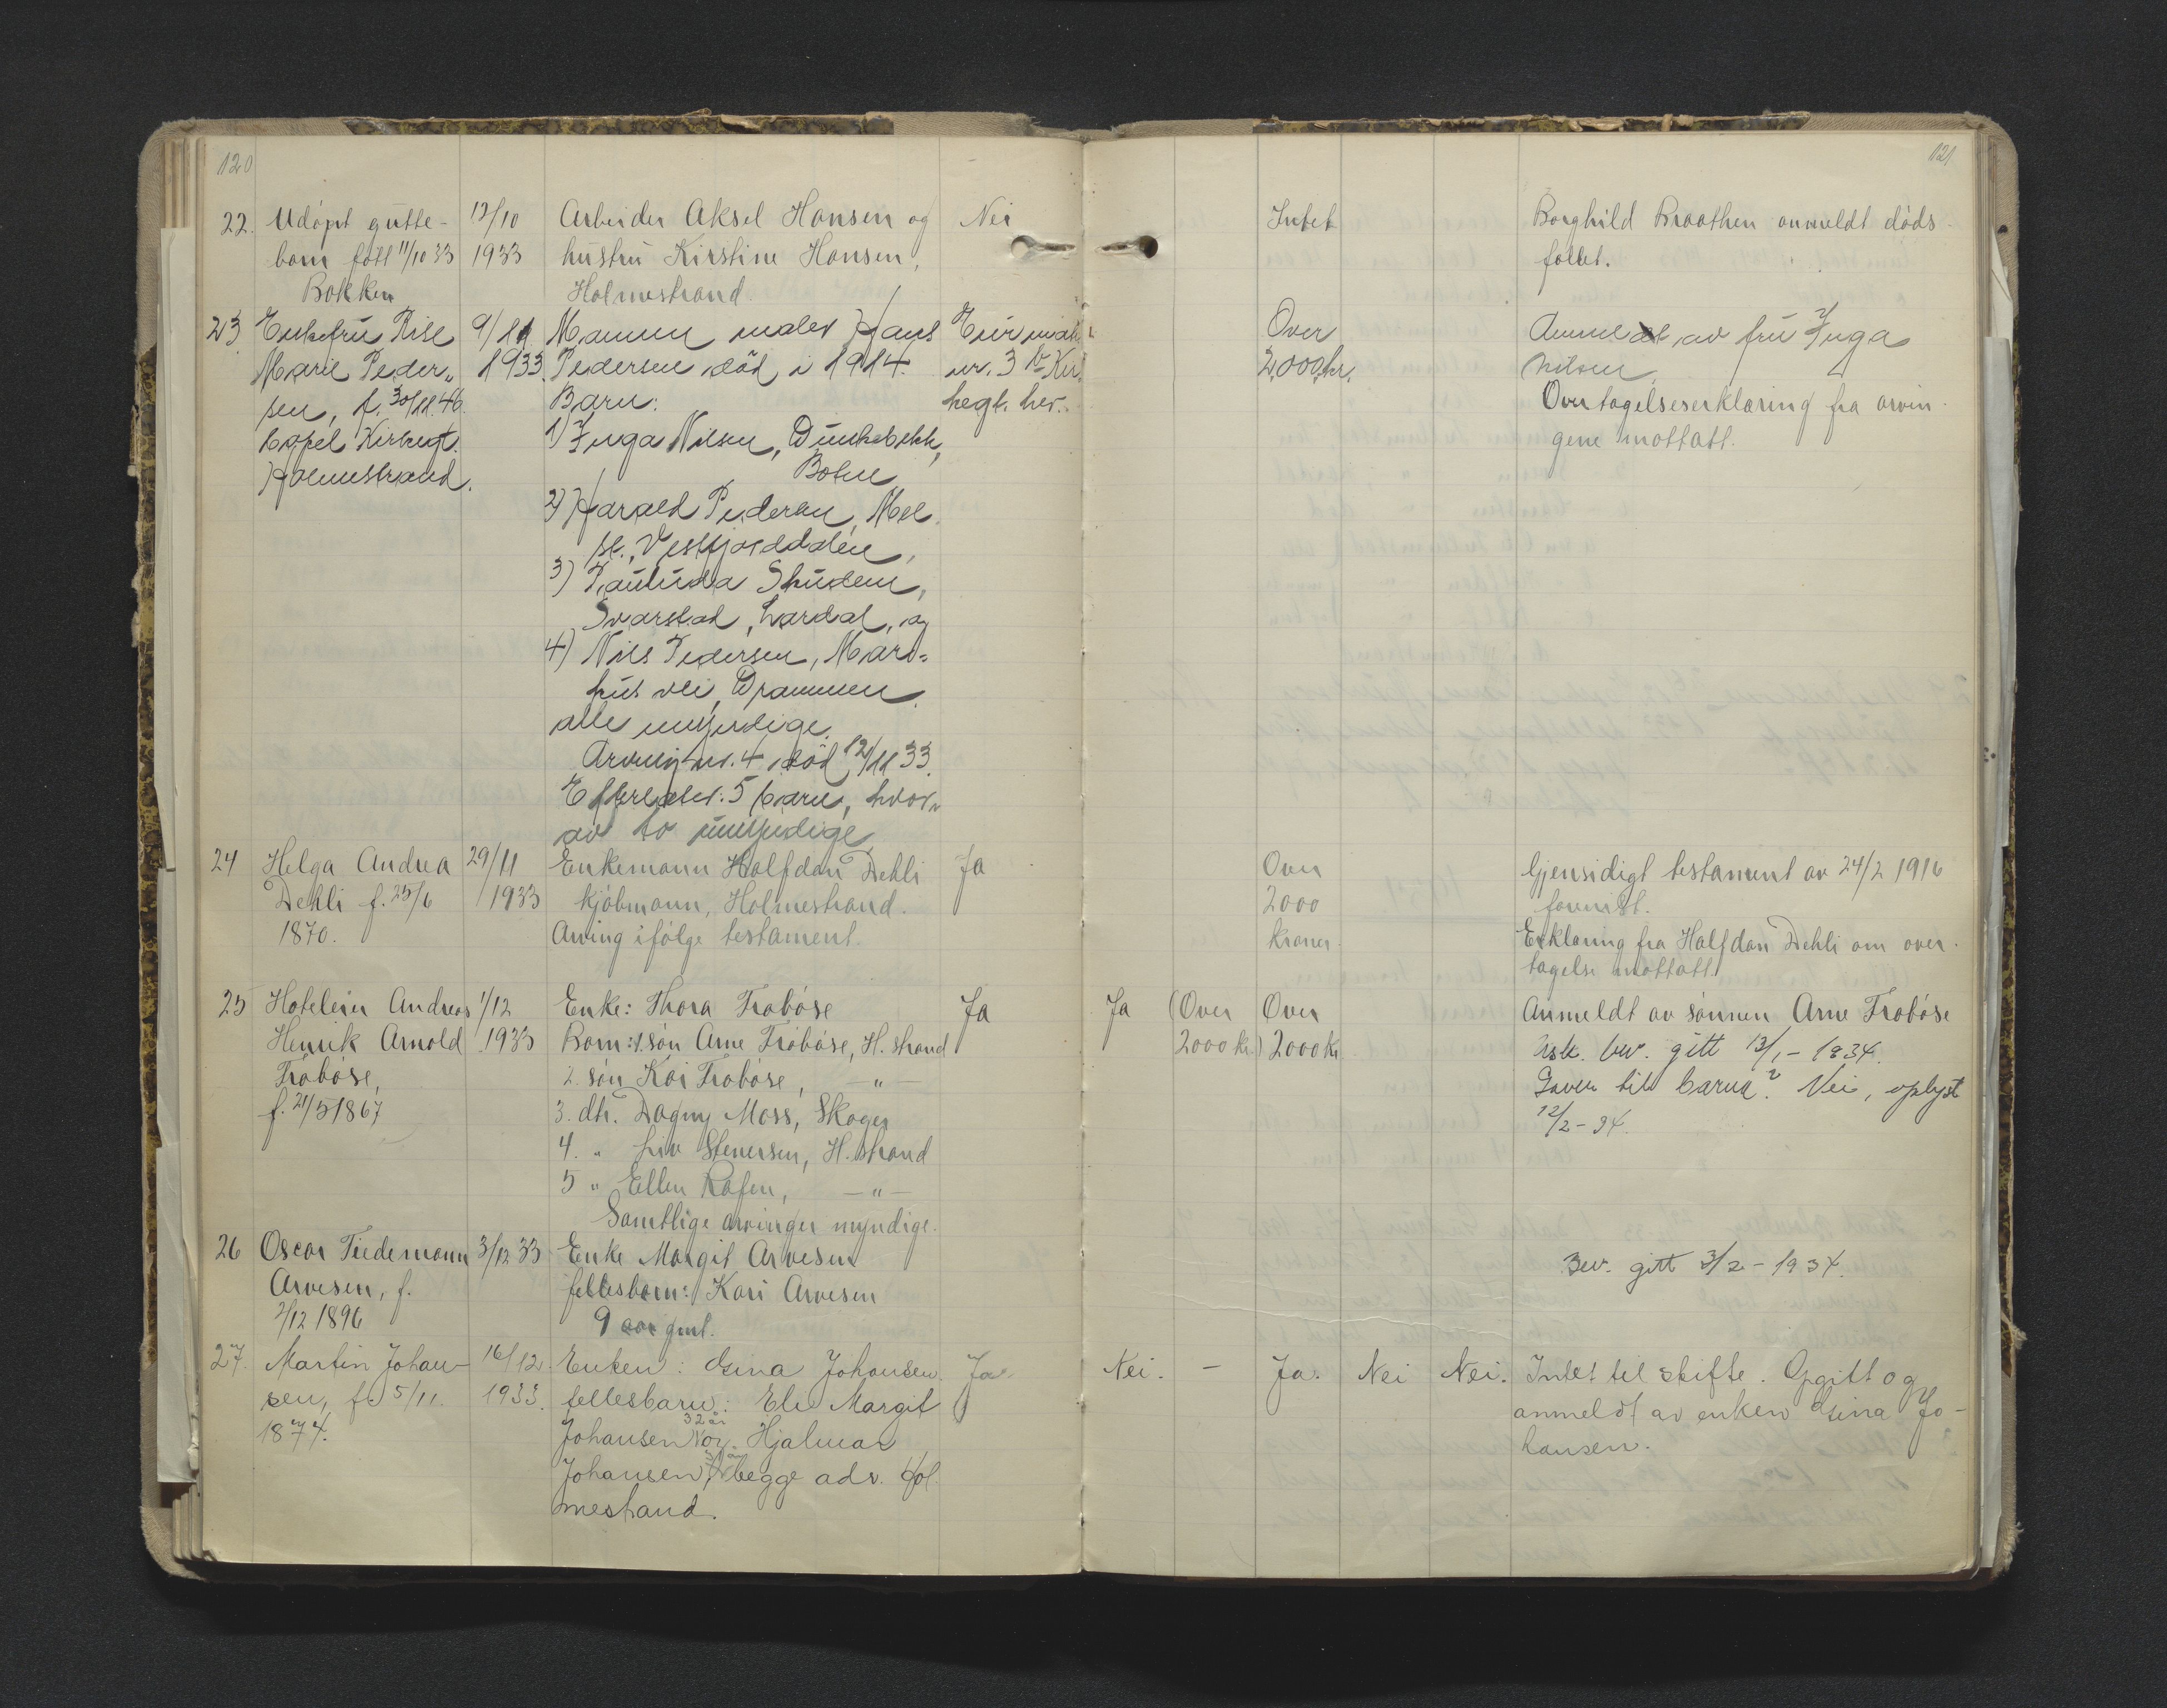 120
22. Udöpt gutte-
barn født 11/10 33
Bakken
12/10
1933
Arbeider Aksel Hansen og
hustru Kirstine Hansen,
Holmestrand
Nei
23 Enkefru Elise
Marie Peder-
sen, f. 30/11.46.
Holmestrand.
9/11
1933.
Mannen maler Hans
Pedersen död i 1914.
Barn:
1) Inga Nilsen,
Botne
2) Harald Pedersen, Mæl
st., Vestfjorddalen,
3) Paulina
Svarstad, Lardal, og
4) Nils Pedersen,
vei, Drammen.
alle umyndige.
Arving nr. 4 död 12/11 33.
Efterlater: 5 barn, hvor-
av to umyndige
nr. 3
24 Helga Andrea
Dehli f. 25/6
1870.
29/11
1933
Enkemann Halfdan Dehli
kjöbmann, Holmestrand.
Arving ifölge testament.
Ja
25 Hoteleier Andreas
Henrik Arnold
Frøbøse,
f. 21/5 1867
1/12
1933
Enke: Thora Frøbøse
Barn: 1. sön Arne Frøbøse, H.strand
2. sön Kai Frøbøse, — " —
3. dtr. Dagny Moss, Skoger
4. " Liv Stenersen, H.strand
5 " Ellen Rafen, — " —
Samtlige arvinger myndige.
Ja
26 Oscar Tiedemann
Arvesen, f.
2/12 1896
3/12 33
Enke Margit Arvesen
fellesbarn: Kari Arvesen
9 aar gml.
27. Martin Johan-
sen, f. 5/11.
1874.
16/12.
1933.
Enken: Gina Johansen.
fellesbarn: Margit
32 år
Johansen og Hjalmar
Johansen, begge adr. Hol-
mestrand.
Ja.
121
Intet
Borghild Braathen anmeldt döds-
fallet.
Over
2,000 kr.
Anmeldt av fru Inga
Nilsen.
Overtagelseserklæring fra arvin-
gene mottatt.
Over
2000
kroner.
Gjensidigt testament av 24/2 1916
forevist.
Erklæring fra Halfdan Dehli om over-
tagelse mottatt.
Ja
(Over
2000 kr.)
Over
2000 kr.
Anmeldt av sönnen Arne Frøbøse
Usk. bev. gitt 13/1 - 1934.
Gaver til barna? Nei, oplyst
12/2 - 34.
Bev. gitt 3/2 - 1934.
Nei. - Ja. Nei Nei.
Intet til skifte. Opgitt og
anmeldt av enken Gina Jo-
hansen.